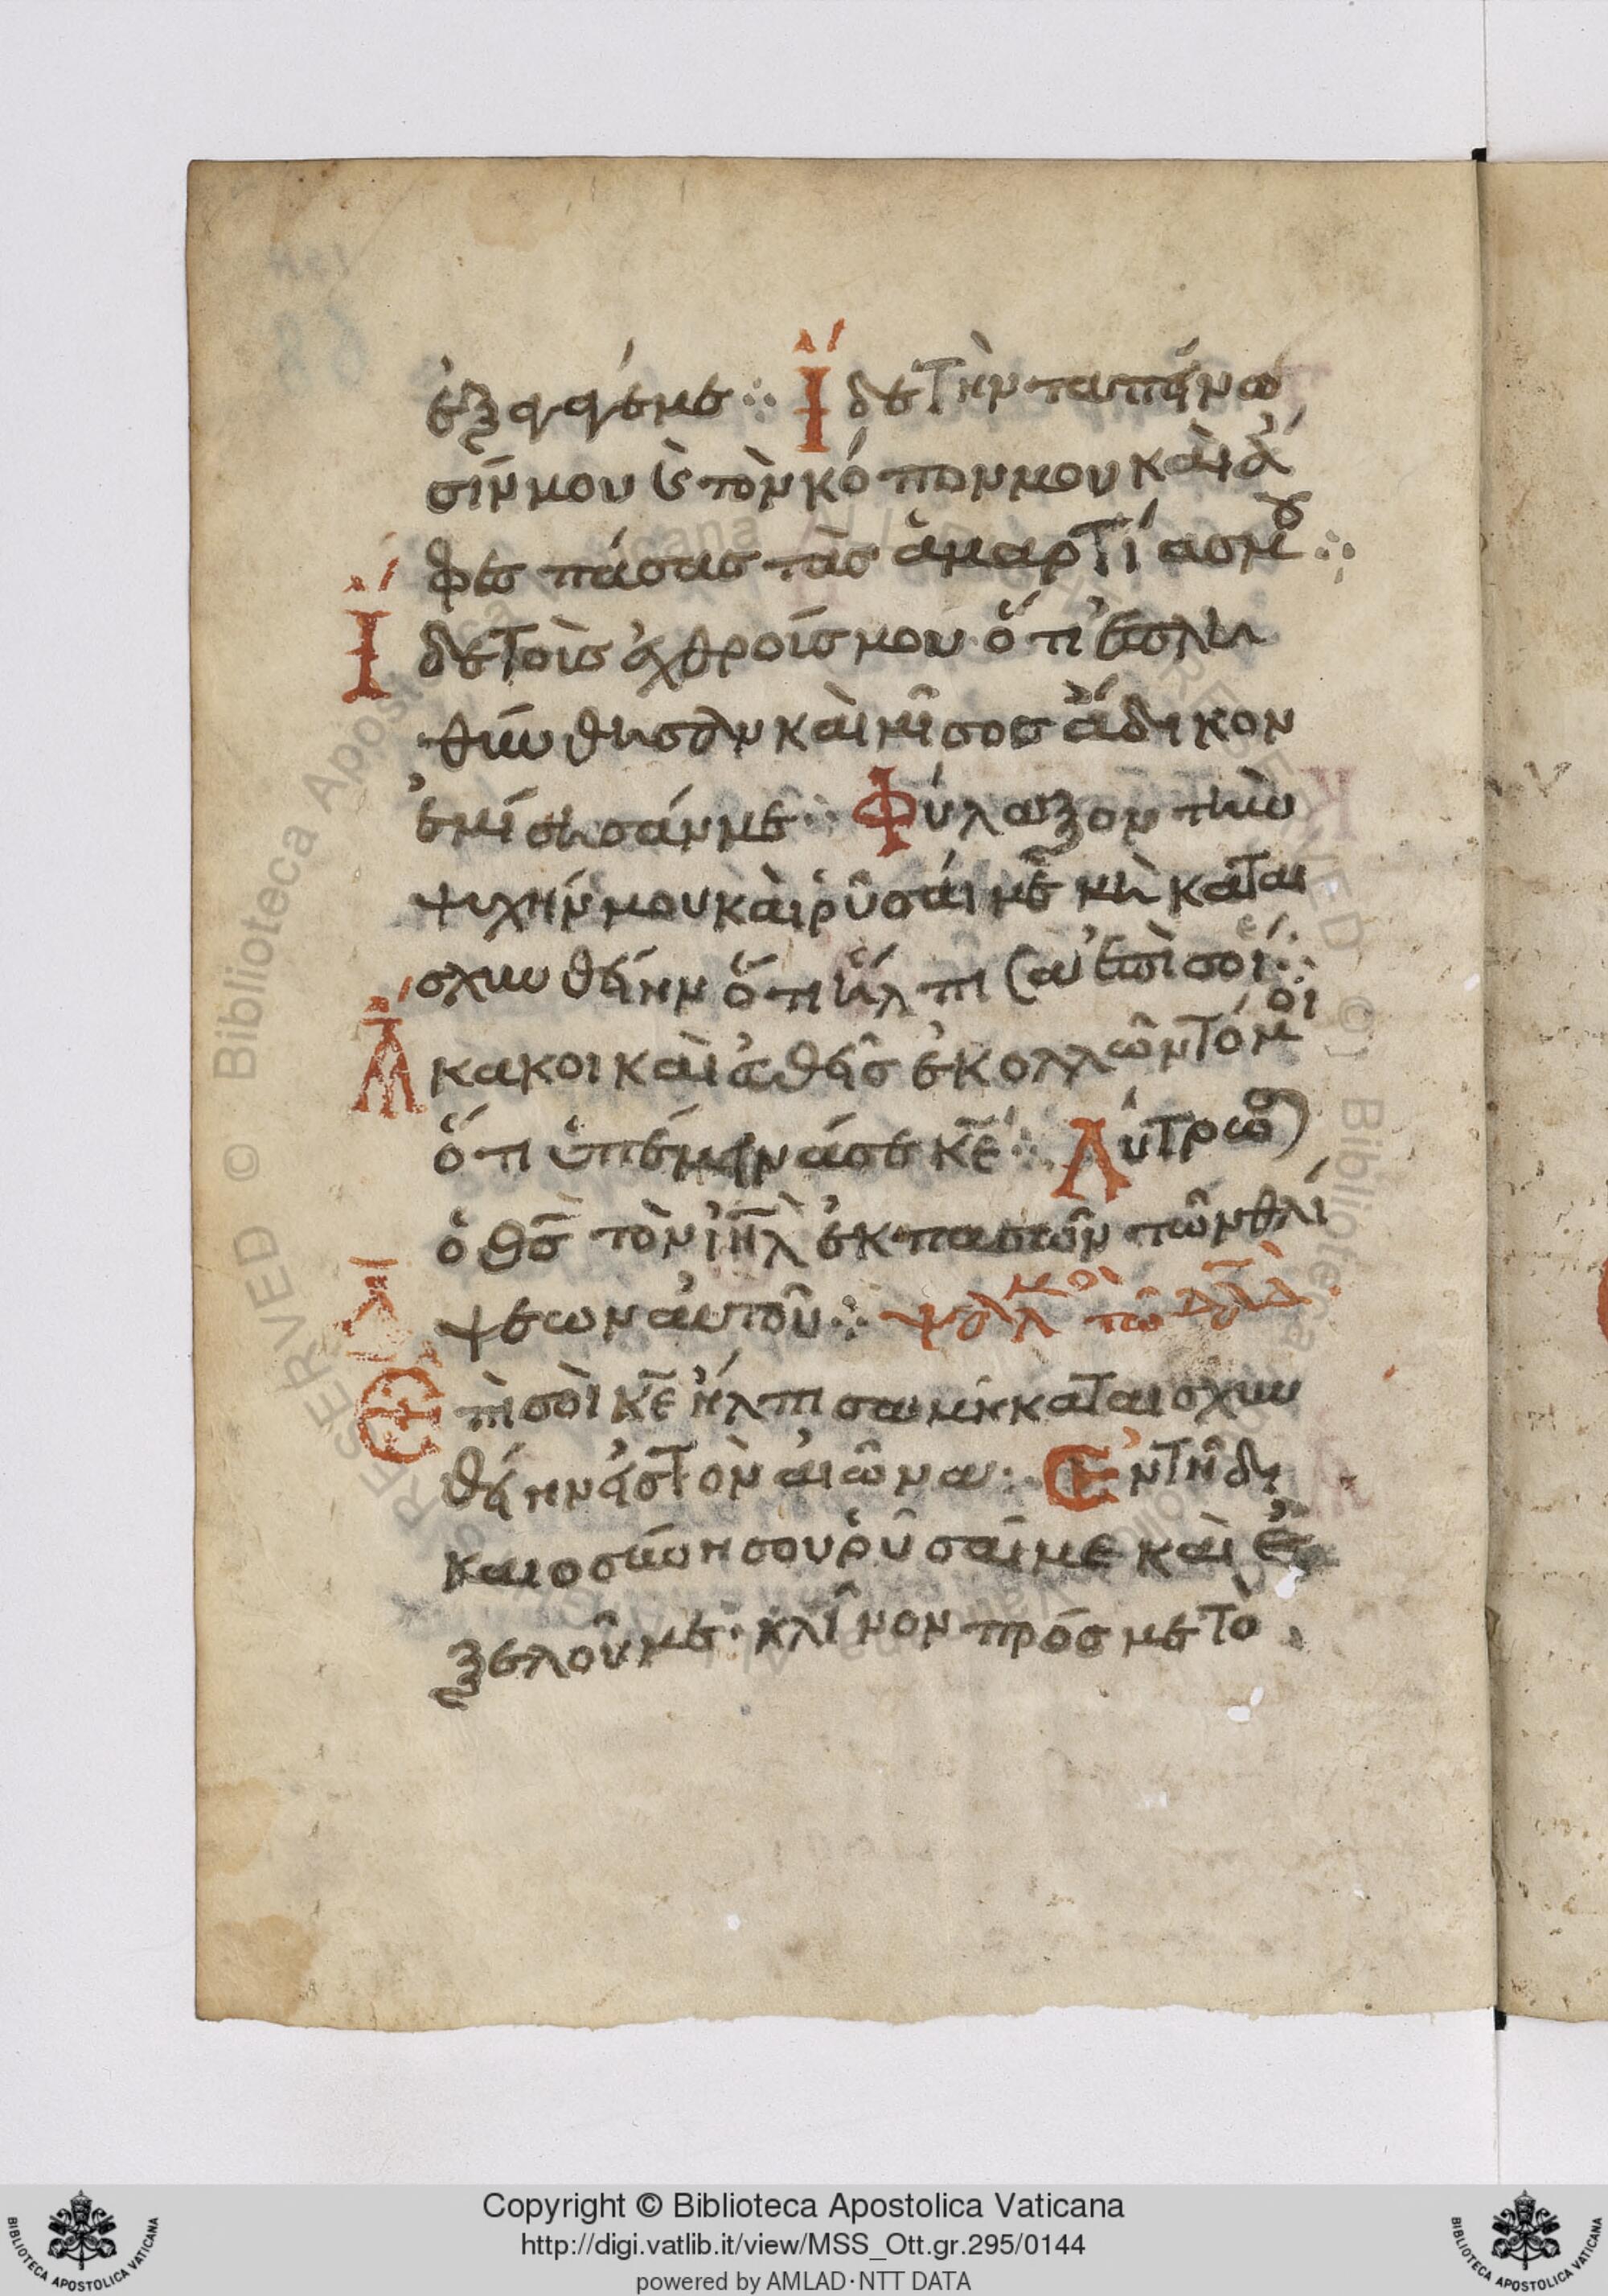 ἐξάγαγέ με ⁘ Ἴδε τὴν ταπείνω
σίν μου ϗ τὸν κόπον μου καὶ ἄ
φες πάσας τὰς ἁμαρτίας μου ⁘
Ἴδε τοὺς ἐχθρούς μου ὅτι ἐπλη
θύνθησαν καὶ μῖσος ἄδικον
ἐμίσησάν με ⁘ Φύλαξον τὴν
ψυχήν μου καὶ ῥῦσαί με μὴ καται
σχυνθείην ὅτι ἤλπισα ἐπὶ σοί ⁘
Ἄκακοι καὶ εὐθεῖς ἐκολλῶντό μοι
ὅτι ὑπέμεινά σε κ̅ε̅ ⁘ Λύτρωσαι
ὁ θ̅ς̅ τὸν ι̅η̅λ̅ ἐκ πασῶν τῶν θλί
ψεων αὐτοῦ ⁘ ψαλμὸς τῶ δ̅α̅δ̅
Ἐπὶ σοὶ κ̅ε̅ ἤλπισα μὴ καταισχυν
θείην εἰς τὸν αἰῶνα · Ἐν τῆ δι
καιοσύνη σου ῥῦσαί με καὶ ἐ
ξελοῦ με · κλῖνον πρός με τὸ
Copyright © Biblioteca Apostolica Vaticana
http://digi.vatlib.it/view/MSS_Ott.gr.295/0144
powered by AMLAD·NTT DATA